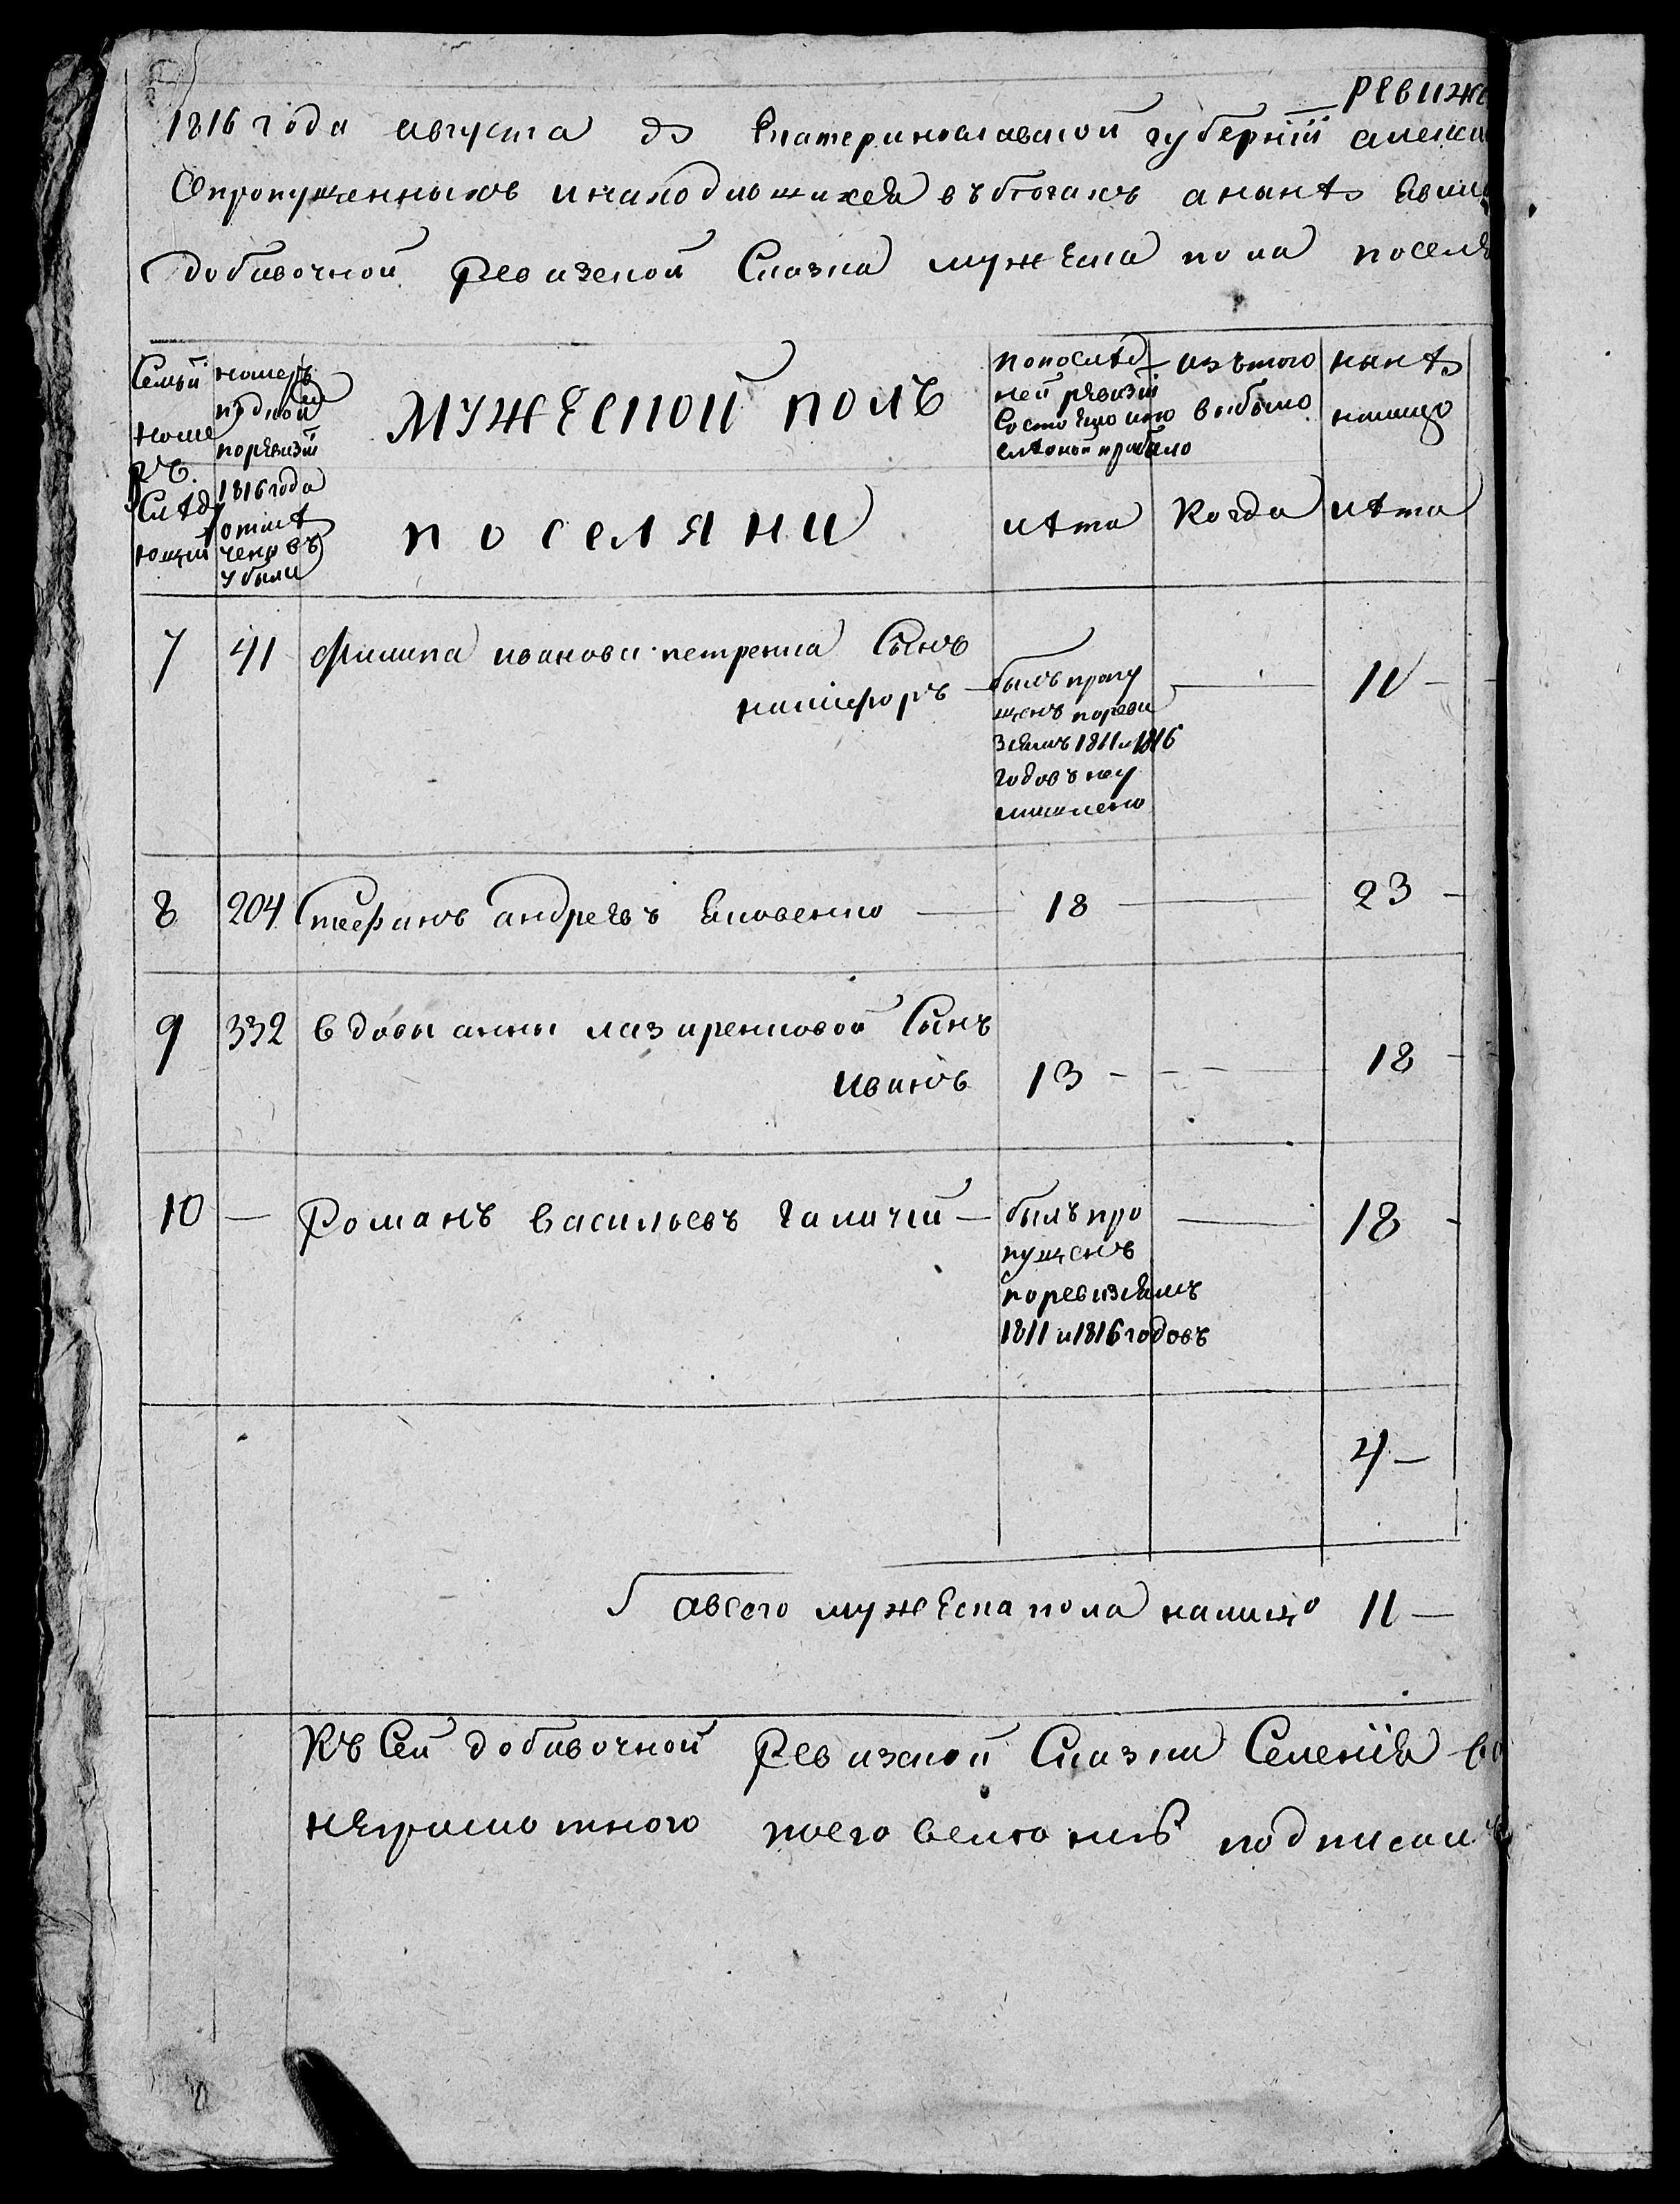 ревижс
1816 года августа дз Екатеринославской губернїи алекса
Опропущенныхъ инаходившихся въбегахъ анынѣ Явив
добавочной ревизской Сказка мужеска пола поселя
Семьи
номе
ръ
Слѣд
ющии
номеръ
поревизїи
1816 года
отмѣ
ченъ въ
убыли
МУЖЕСКОЙ ПОЛЪ
поселяни
попослѣд
ней ревизїи
Состоялоипо
слѣоной прибыло
лѣта
изътого
выбыло
Когда
нынѣ
налицо
лѣта
7 41 Филипа иванова петренка Сынъ
никифоръ —
былъ пропу
щенъ пореви
зіямъ 1811 и 1816
годовъ неу
численъ
— 11 —
8 204 Стефанъ андреевъ Яковенко — 18 — 23 —
9 332 вдовы анны лазаренковой Сынъ
иванъ 13 - — 18 -
10 — Романъ васильевъ галичїй —
былъ про
пущенъ
поревизіямъ
1811 и 1816 годовъ
— 18 -
4 —
авсего мужеска пола налицо 11 —
Къ Сей добавочной Ревизской Сказки Селенїя во
неграмотного подписал